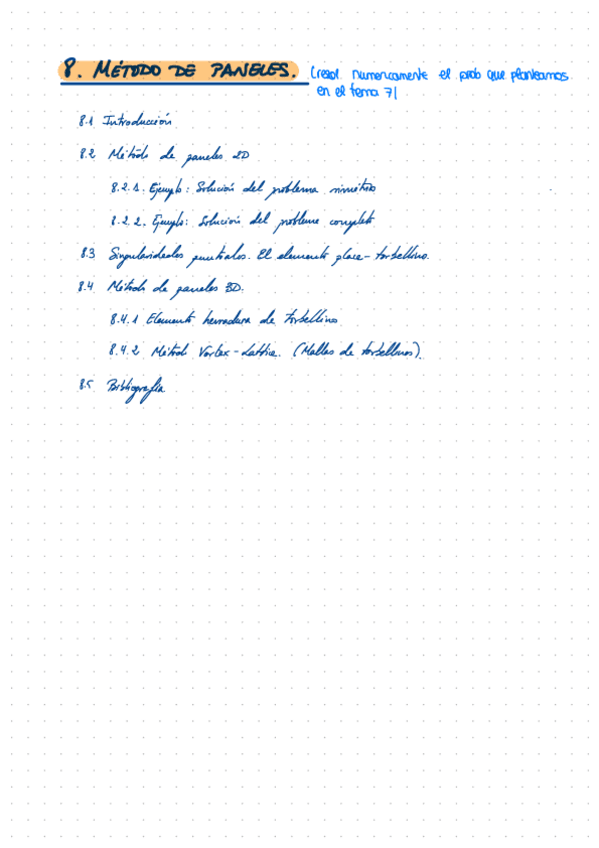 8. MÉTODO DE PANELES. (resol. numericamente el prob que planteamos
en el tema 7)
8.1 Introducción
8.2 Método de paneles 2D
8.2.1. Ejemplo: Solución del problema simétrico
8.2.2. Ejemplo: Solución del problema completo
8.3 Singularidades puntuales. El elemento placa-torbellino.
8.4 Método de paneles 3D.
8.4.1 Elemento herradura de torbellino
8.4.2 Método Vortex-Lattice. (Mallas de torbellinos).
8.5 Bibliografía